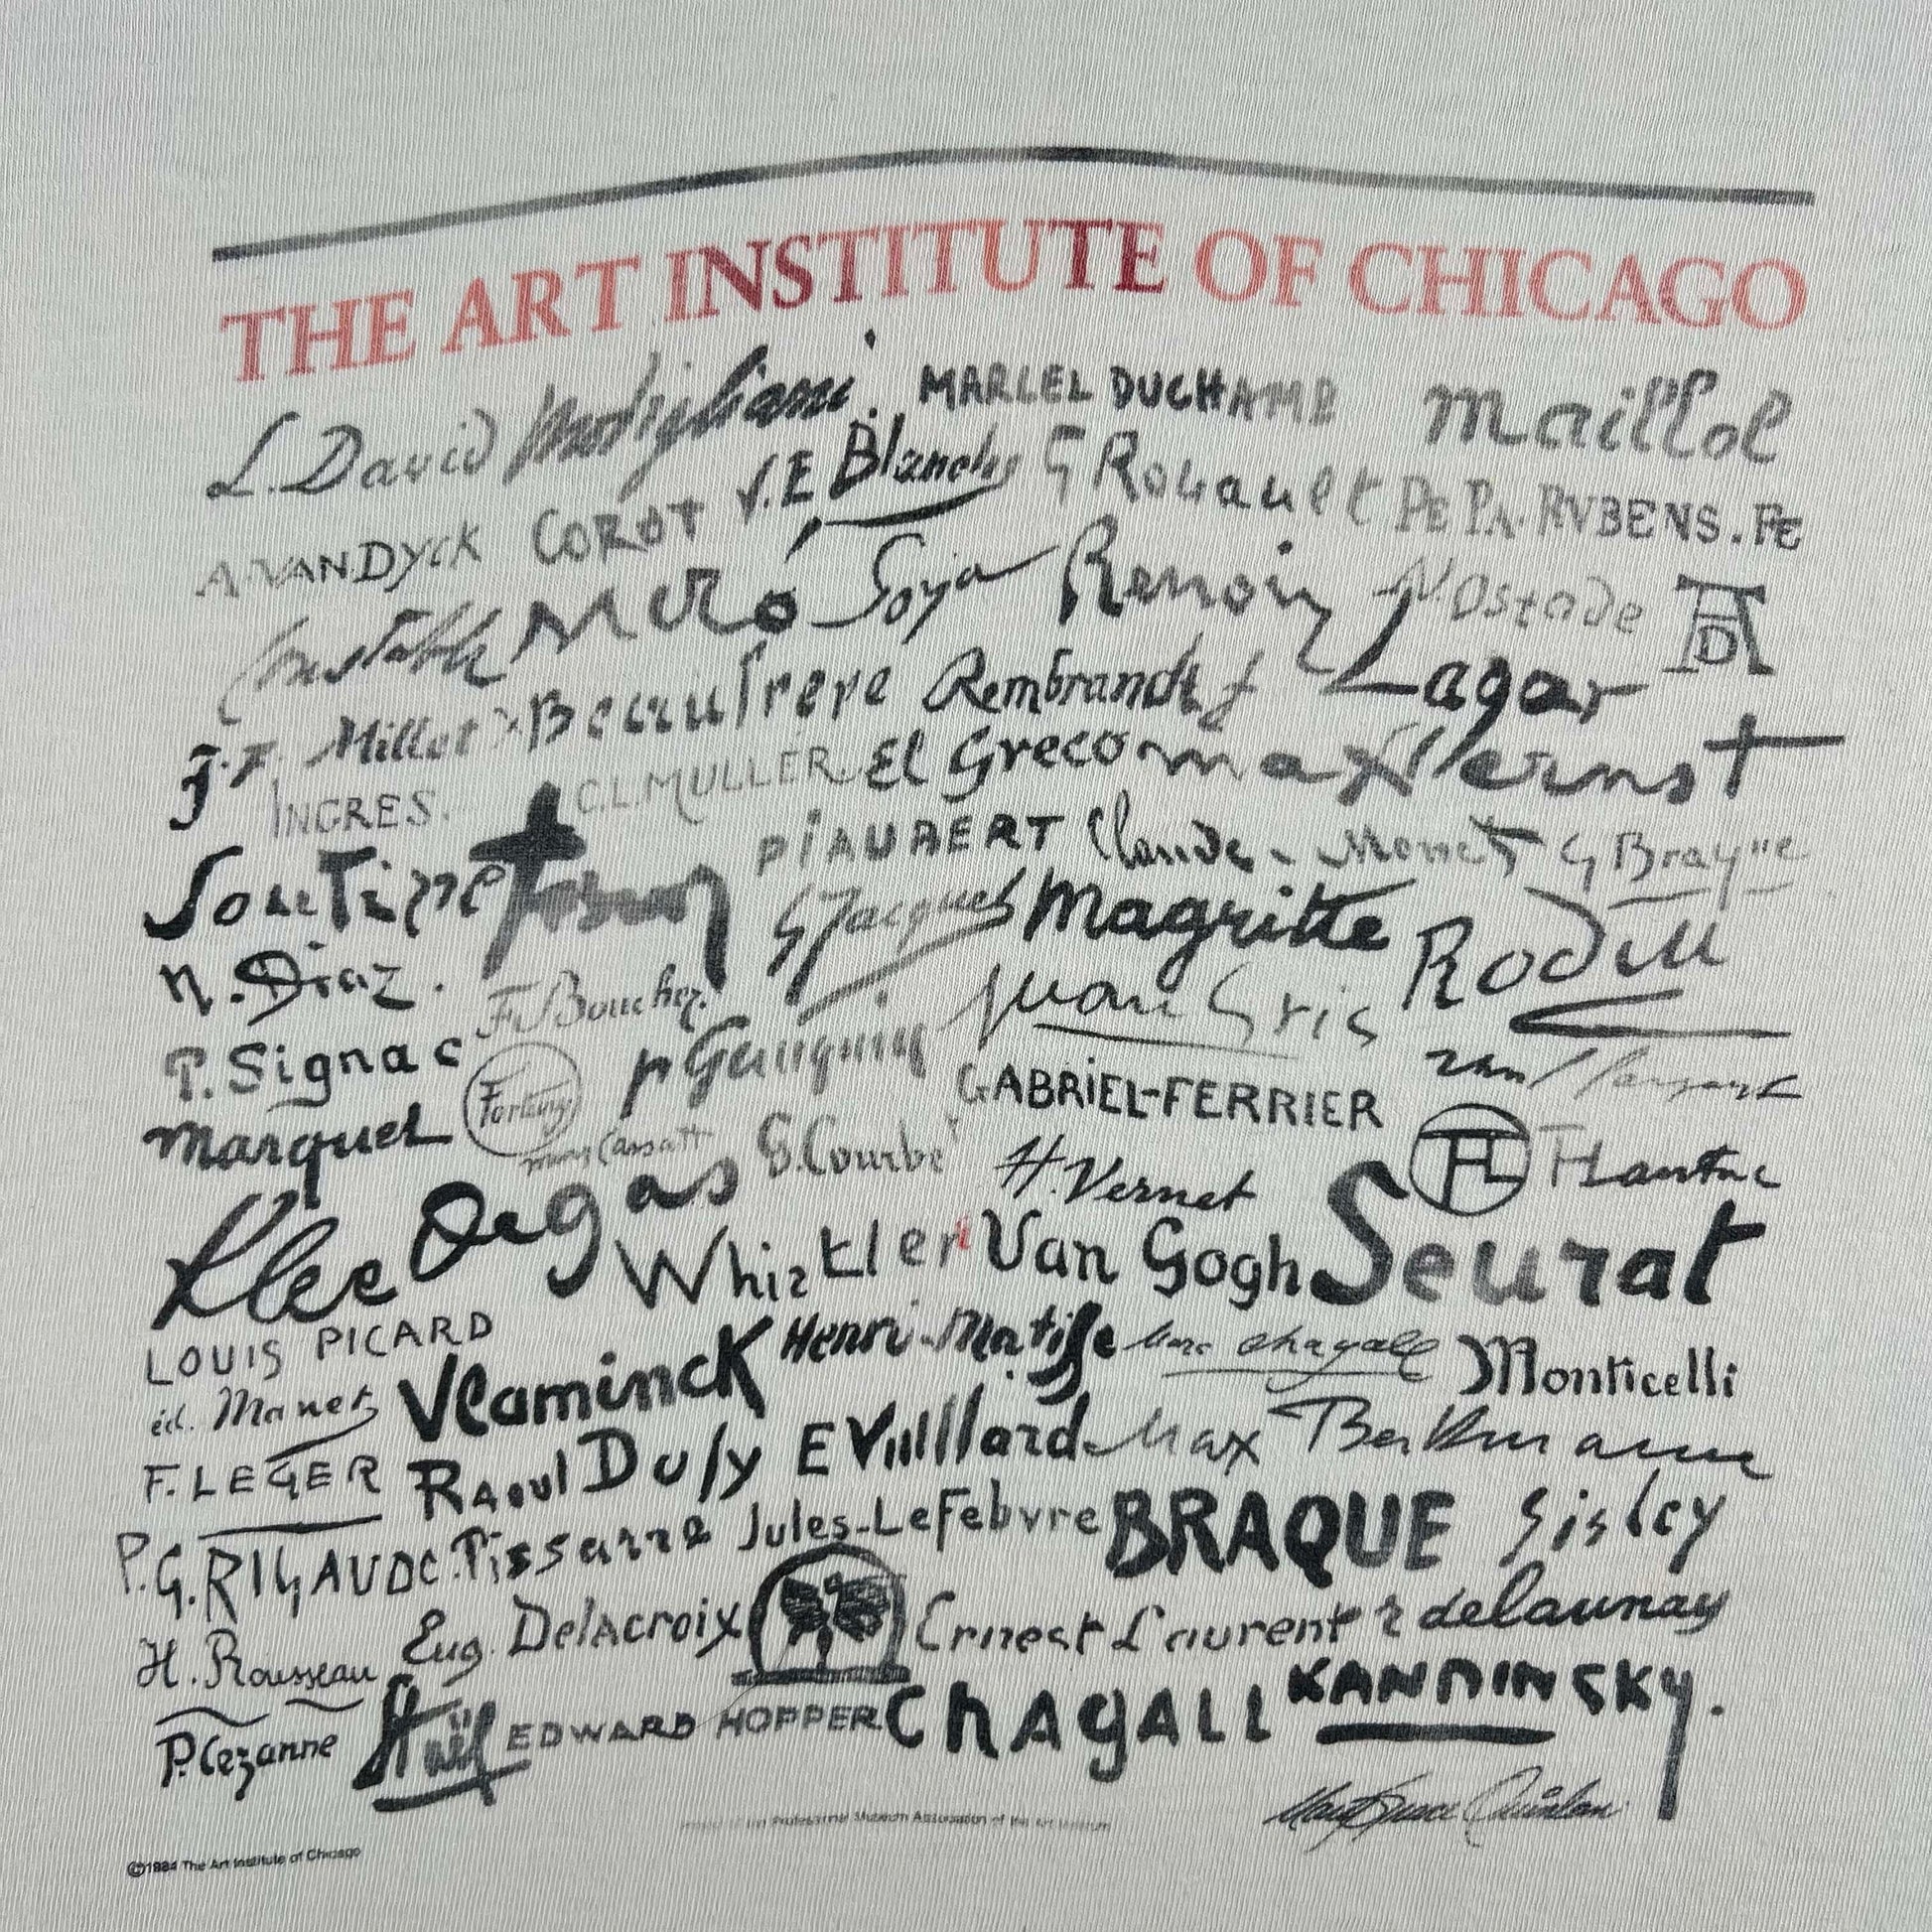 THE ART INSTITUTE OF CHICAGO
L. David Modigliani. MARCEL DUCHAMP Maillol
A. VAN DYCK COROT J.E Blanche G Rouault PE PA. RVBENS. FE
Constable Miró Goya Renoir V. Ostade AD
J.F. Millet Beaufrere Rembrandt f Lagar
INGRES. C.L. MULLER El Greco max ernst
Soutine PIAUBERT Claude Monet G Braque
N. Diaz. F. Boucher G Jacquet Magritte Rodin
P. Signac Fortuny P Gauguin Juan Gris
marquet mary Cassatt G. Courbet GABRIEL-FERRIER
Klee Degas H. Vernet HTL HLautrec
Whistler Van Gogh Seurat
LOUIS PICARD Henri-Matisse Marc Chagall Monticelli
éd. Manet Vlaminck
F. LEGER Raoul Dufy E Vuillard Max Beckmann
P. G. RIGAUD C. Pissarro Jules-LeFebvre BRAQUE Sisley
H. Rousseau Eug. Delacroix Ernest Laurent r delaunay
P. Cezanne Staël EDWARD HOPPER ChAgALL KANDINSKY.
Mary Grace Quinlan
Professional Museum Association of the Art Museum
©1984 The Art Institute of Chicago